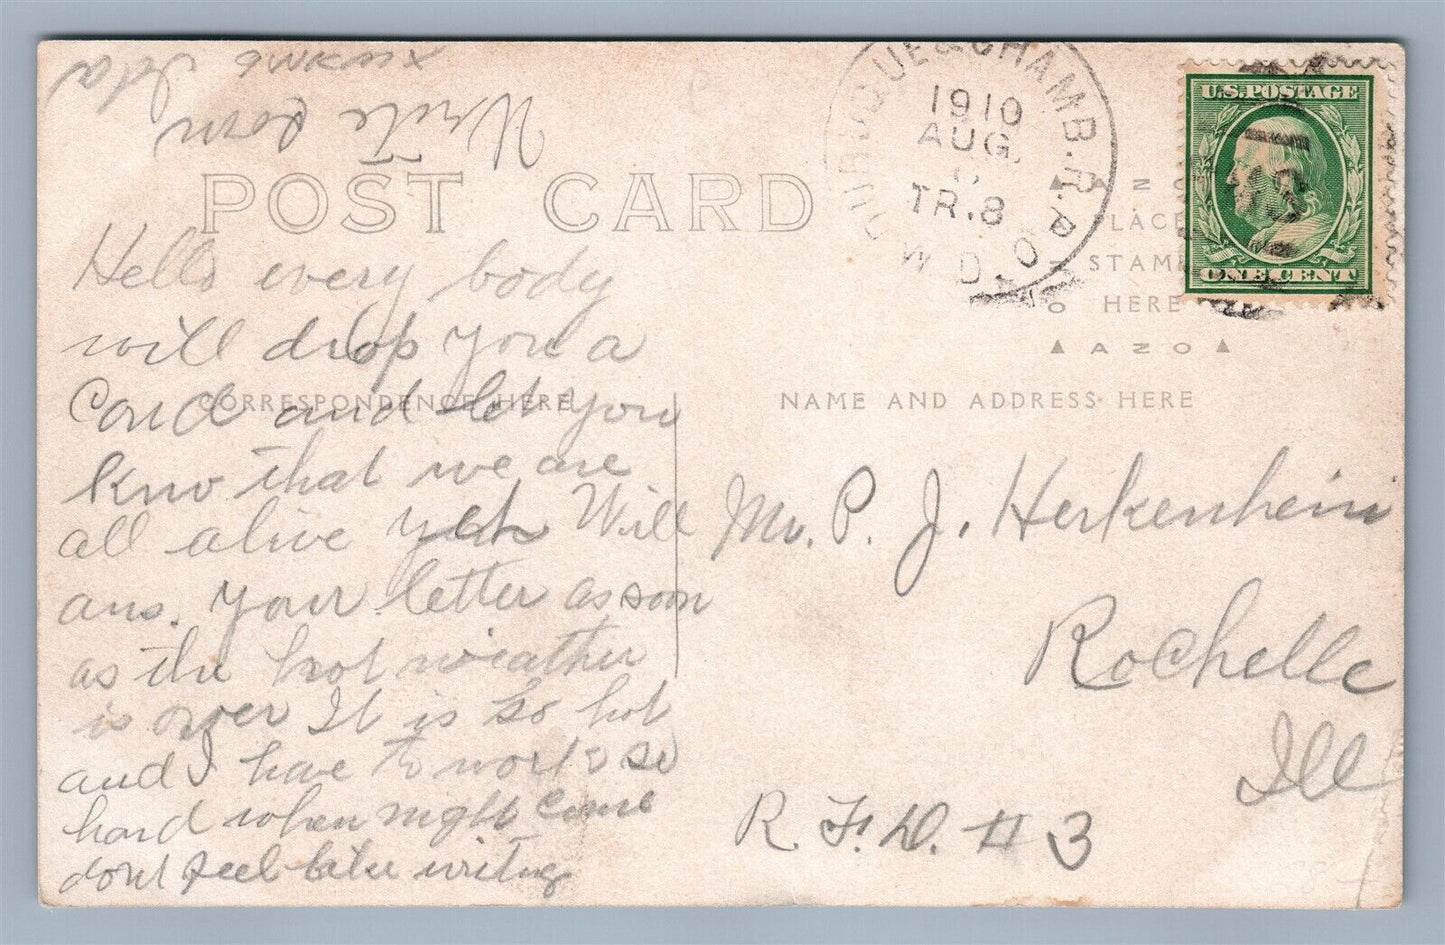 Write soon
Ida
POST CARD
DUBUQUE & CHAMB. R.P.O.
1910
AUG.
TR.8
M.D.
U.S. POSTAGE
ONE CENT
PLACE
STAMP
HERE
AZO
CORRESPONDENCE HERE
NAME AND ADDRESS HERE
Hello every body
will drop you a
Card and let you
know that we are
all alive yet Will
ans. your letter as soon
as the hot weather
is over It is so hot
and I have to work so
hard when night come
dont feel like writing
Mr. P. J. Herkenhein
Rochelle
Ill
R. F. D. # 3